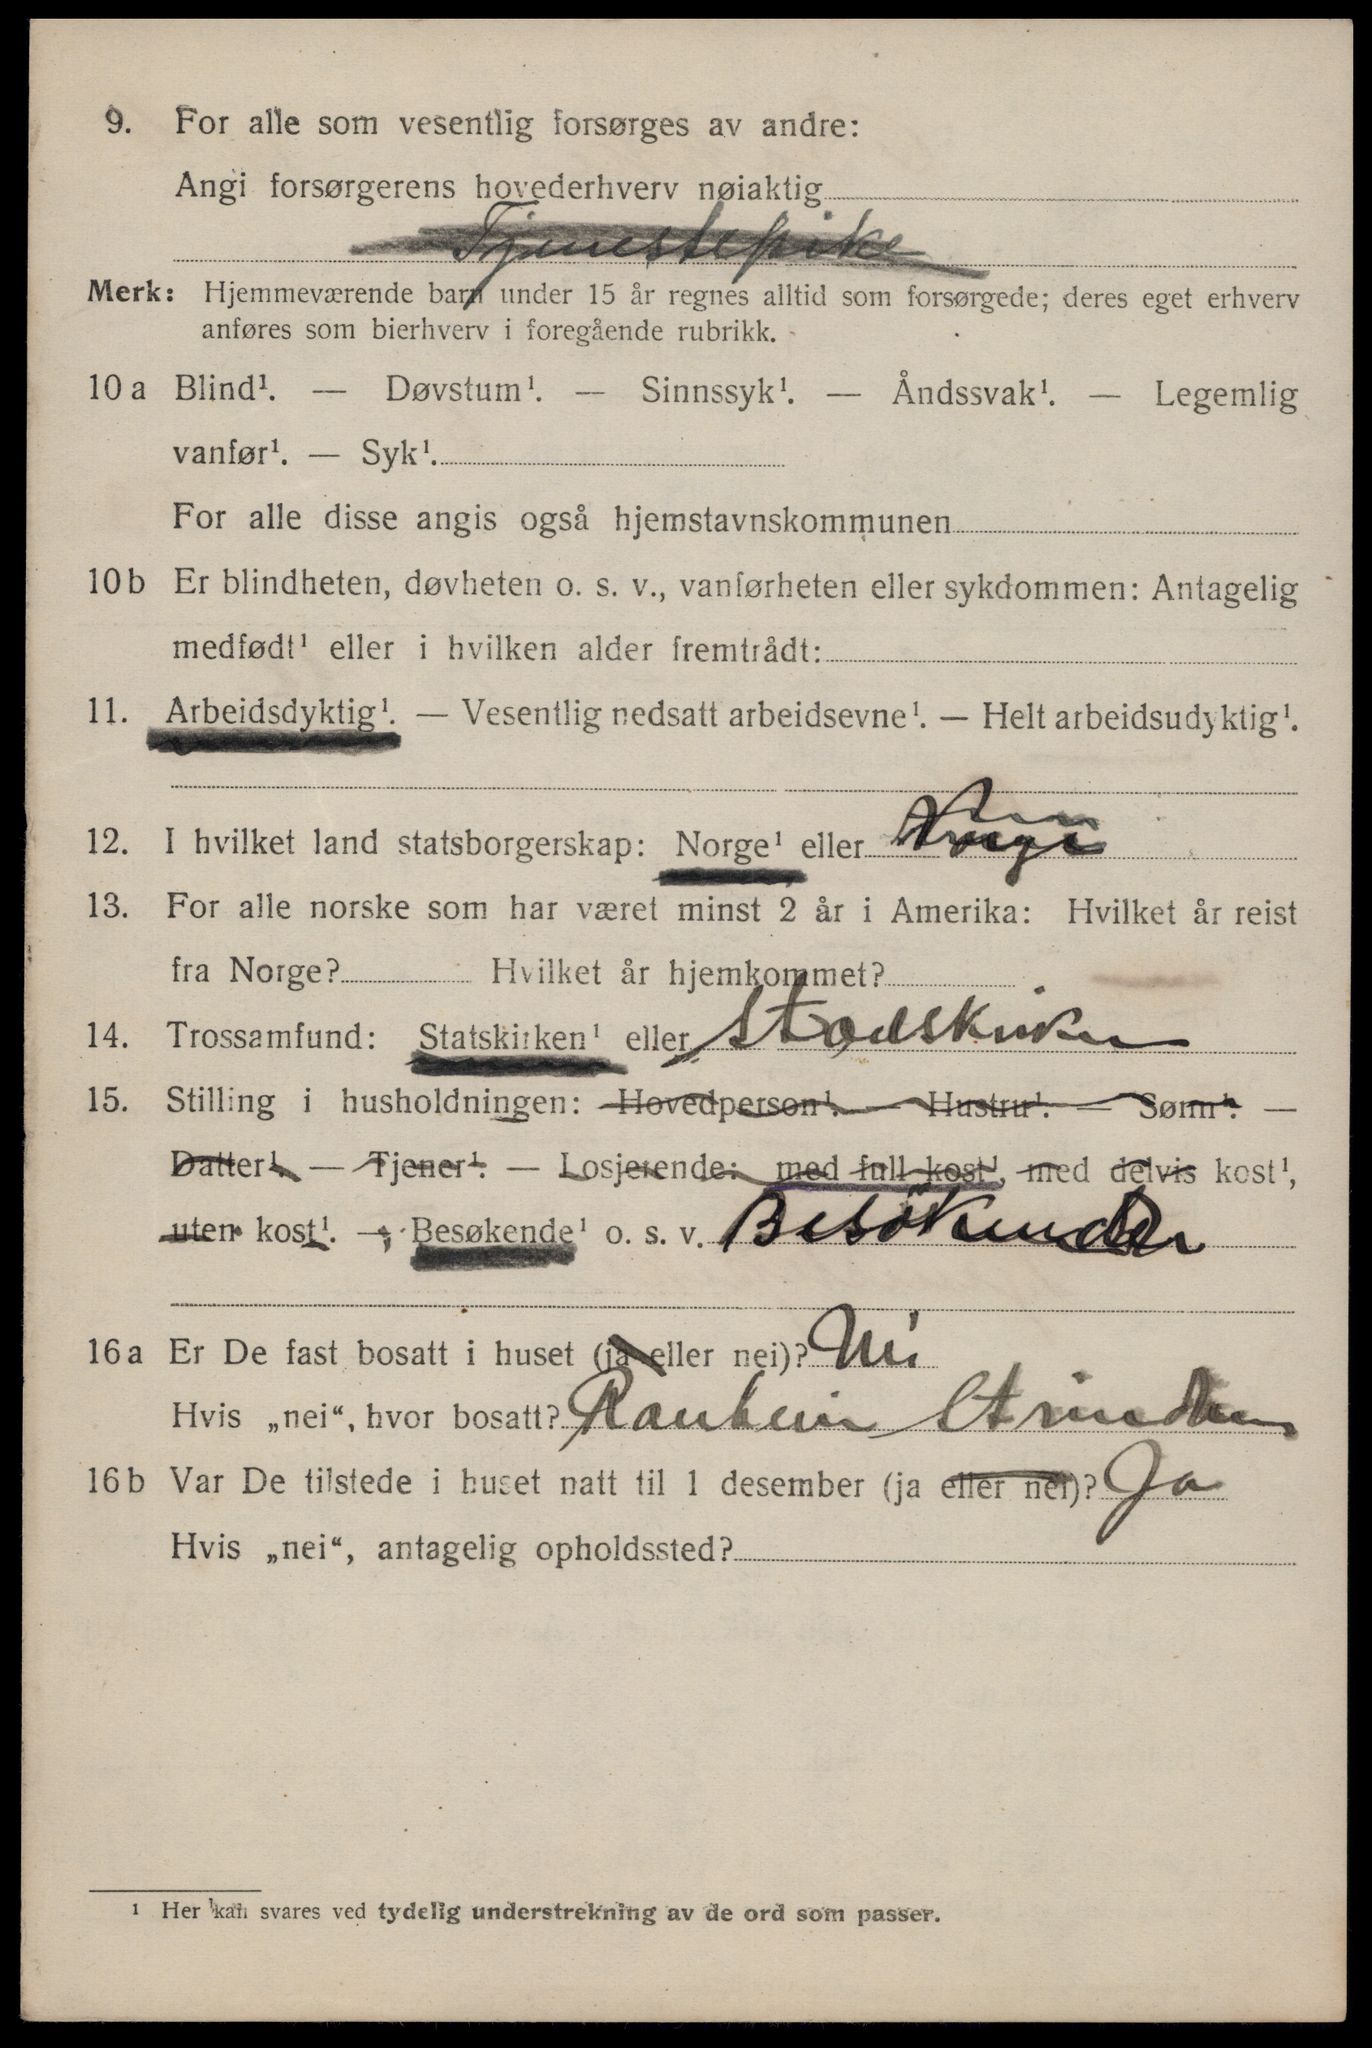 9. For alle som vesentlig forsørges av andre:
Angi forsørgerens hovederhverv nøiaktig
Tjenestepike
Merk: Hjemmeværende barn under 15 år regnes alltid som forsørgede; deres eget erhverv
anføres som bierhverv i foregående rubrikk.
10 a Blind¹. — Døvstum¹. — Sinnssyk¹. — Åndssvak¹. — Legemlig
vanfør¹. — Syk¹.
For alle disse angis også hjemstavnskommunen
10 b Er blindheten, døvheten o. s. v., vanførheten eller sykdommen: Antagelig
medfødt¹ eller i hvilken alder fremtrådt:
11. Arbeidsdyktig¹. — Vesentlig nedsatt arbeidsevne¹. — Helt arbeidsudyktig¹.
12. I hvilket land statsborgerskap: Norge¹ eller Norge
13. For alle norske som har været minst 2 år i Amerika: Hvilket år reist
fra Norge? Hvilket år hjemkommet?
14. Trossamfund: Statskirken¹ eller Stadskirken
15. Stilling i husholdningen: Hovedperson¹. — Hustru¹. — Sønn¹. —
Datter¹. — Tjener¹. — Losjerende: med full kost¹, med delvis kost¹,
uten kost¹. — Besøkende¹ o. s. v. Besökende
16 a Er De fast bosatt i huset (ja eller nei)? Nei
Hvis „nei“, hvor bosatt? Ranheim Strinden
16 b Var De tilstede i huset natt til 1 desember (ja eller nei)? Ja
Hvis „nei“, antagelig opholdssted?
¹ Her kan svares ved tydelig understrekning av de ord som passer.